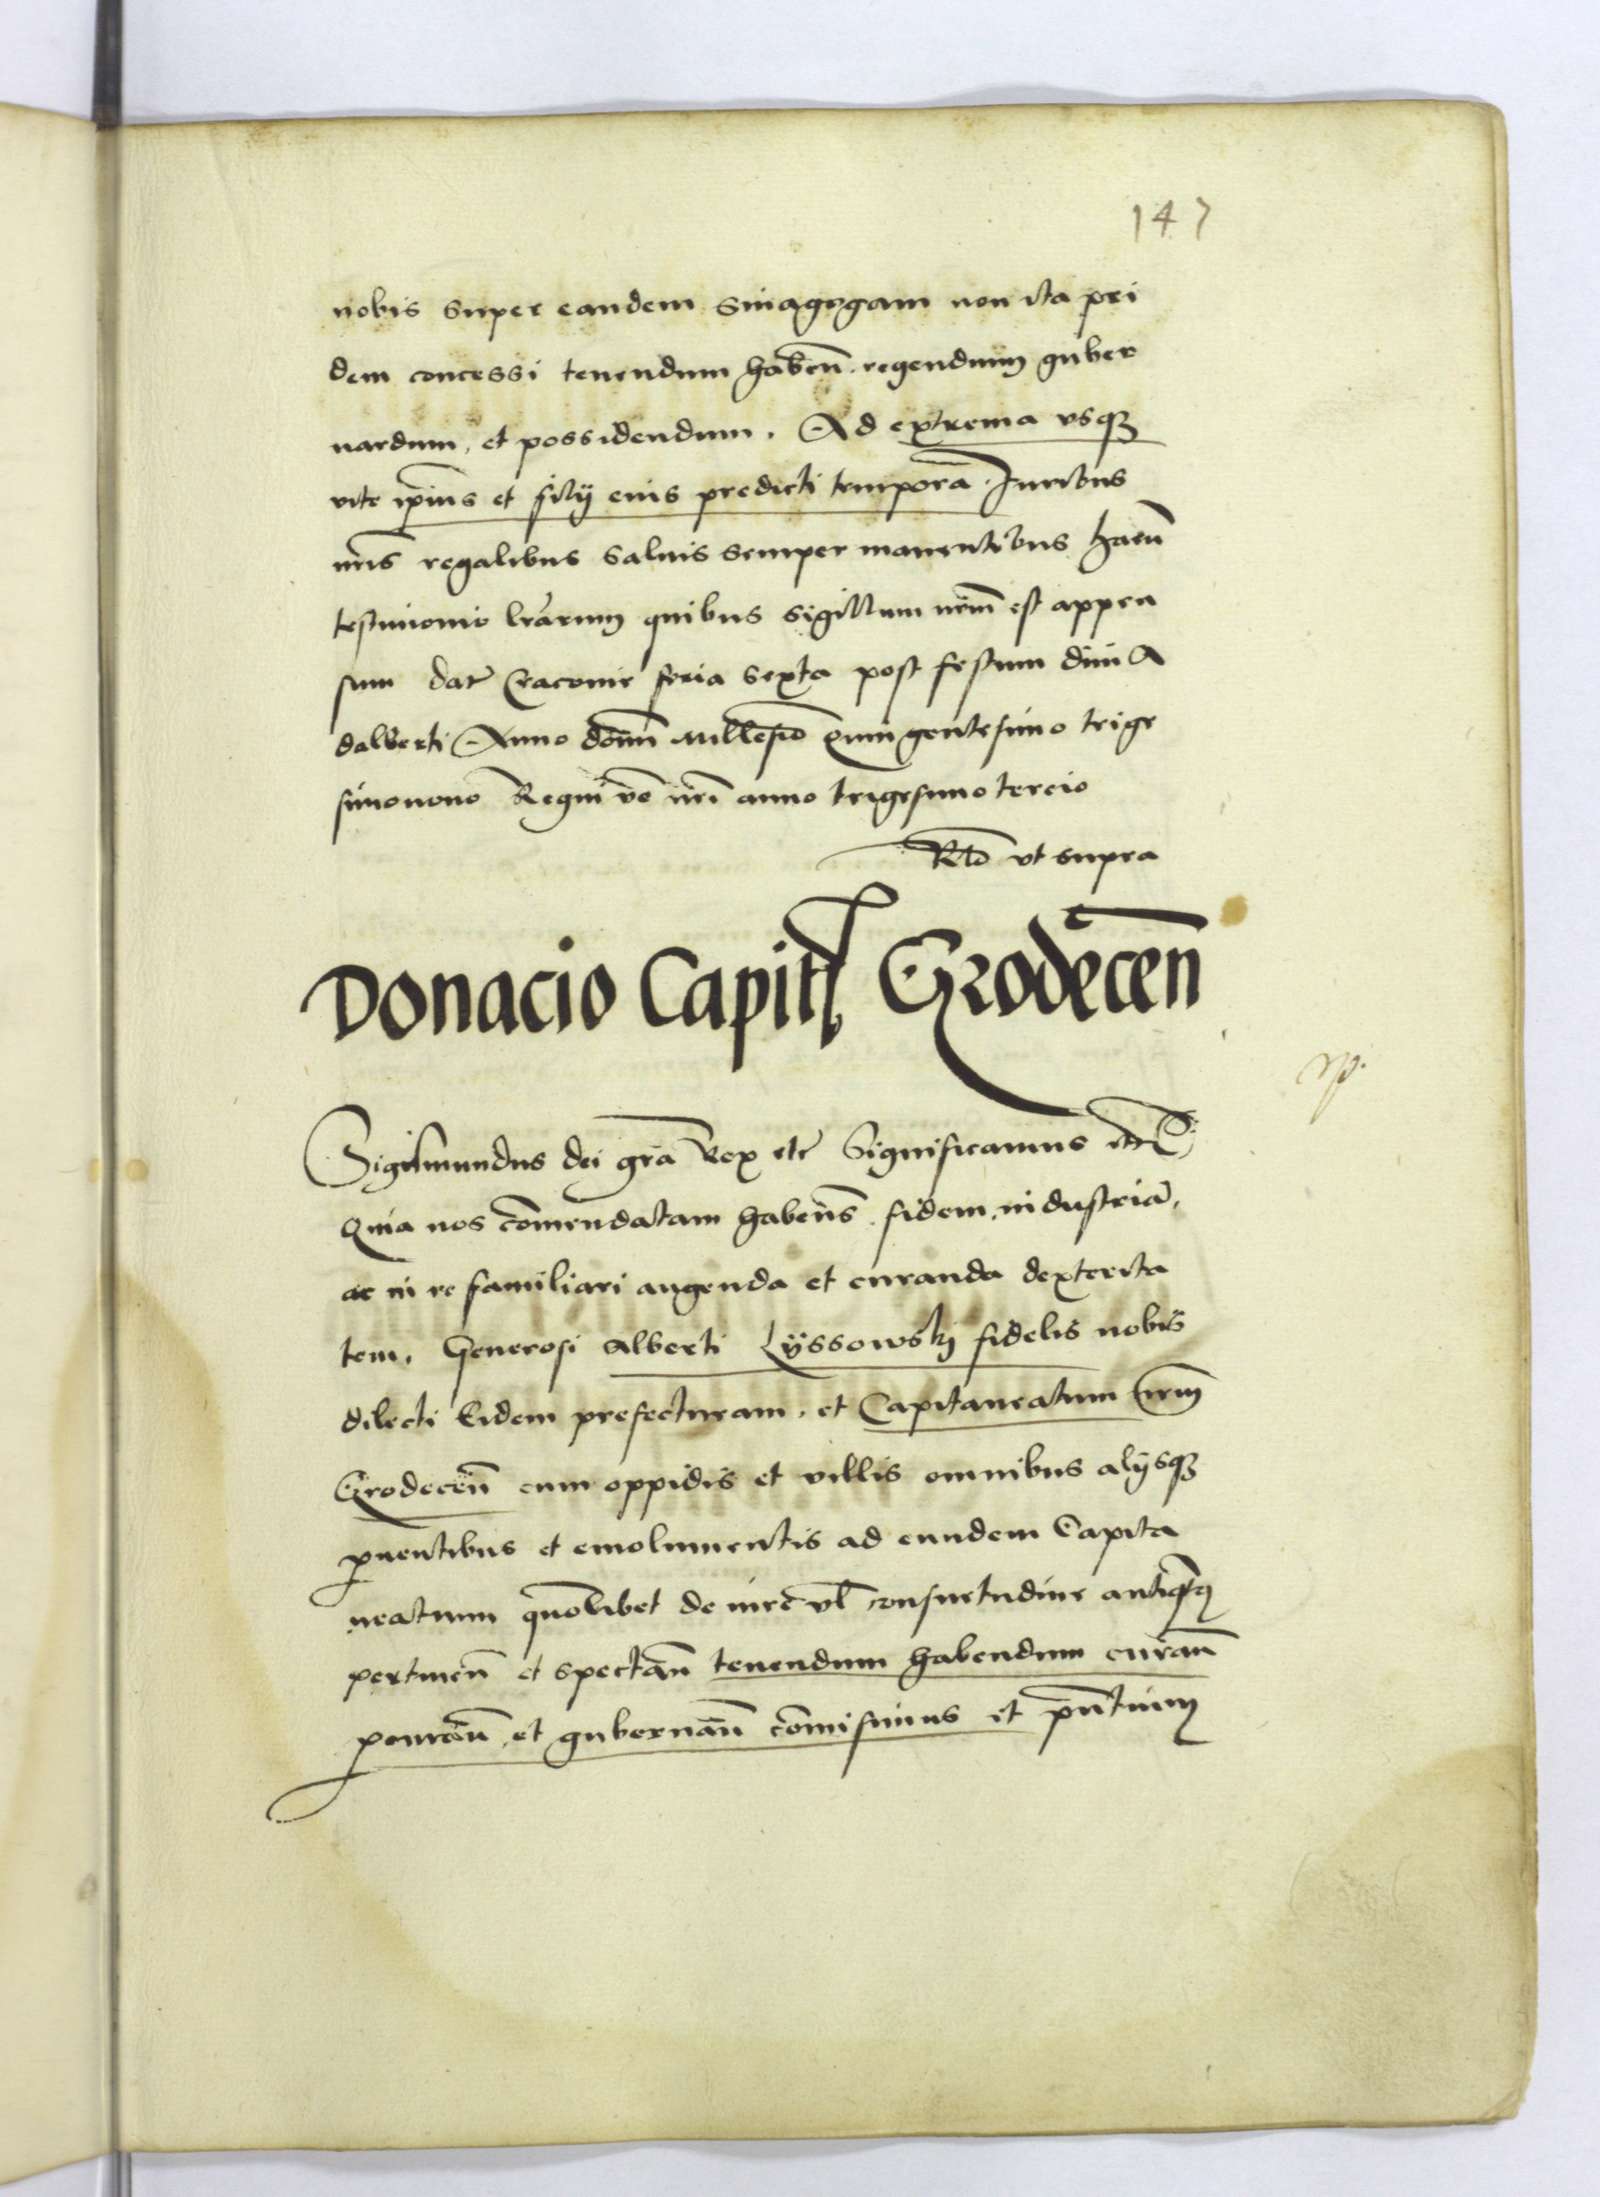 147
nobis super eandem sinagogam non ita pri
dem concessi tenendum haben̄. regendum guber
nandum, et possidendum. Ad extrema vsq3
vite ip̄ius et filij eius predicti tempora. Iuribus
nr̄is regalibus saluis semper manentibus haru̅
testimonio lr̄arum quibus sigillum nr̄m est appen
sum dat̄ Cracouie feria sexta post festum diui A
dalberti Anno domī Millesīo Quingentesimo trige
simonono Regni vō nr̄i anno trigesimo tercio
Rłō vt supra
Donacio Capitł Grodecēn
Sigismundus dei grā Rex etc̄ Significamus
Quia nos cōmendatam habens̄. fidem, industriā,
ac in re familiari augenda et curanda dexterita
tem, Generosi Alberti Lÿssowskj fidelis nobis
dilecti Eidem prefecturam, et Capitaneatum nr̄m
Grodecēn cum oppidis et villis omnibus alijsq3
prouentibus et emolumentis ad eundem Capita
neatum quōlibet de iure vl̄ consuetudine antiq̄tus
pertinēn et spectān tenendum habendum curān
procurān et gubernān cōmisimus et